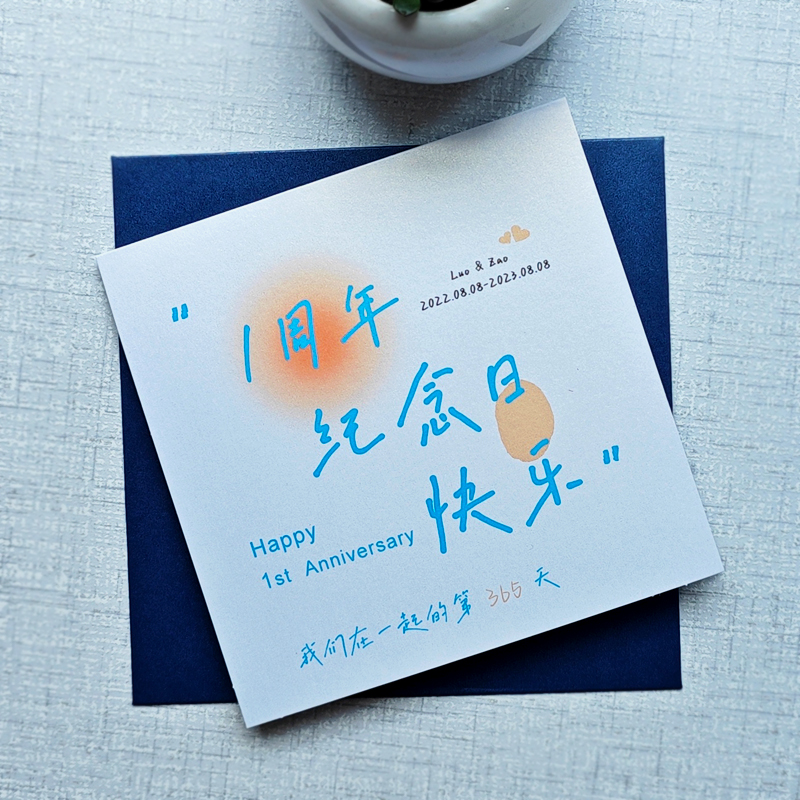 Luo & Zao
2022.08.08-2023.08.08
"1周年
纪念日
快乐"
Happy
1st Anniversary
我们在一起的第365天